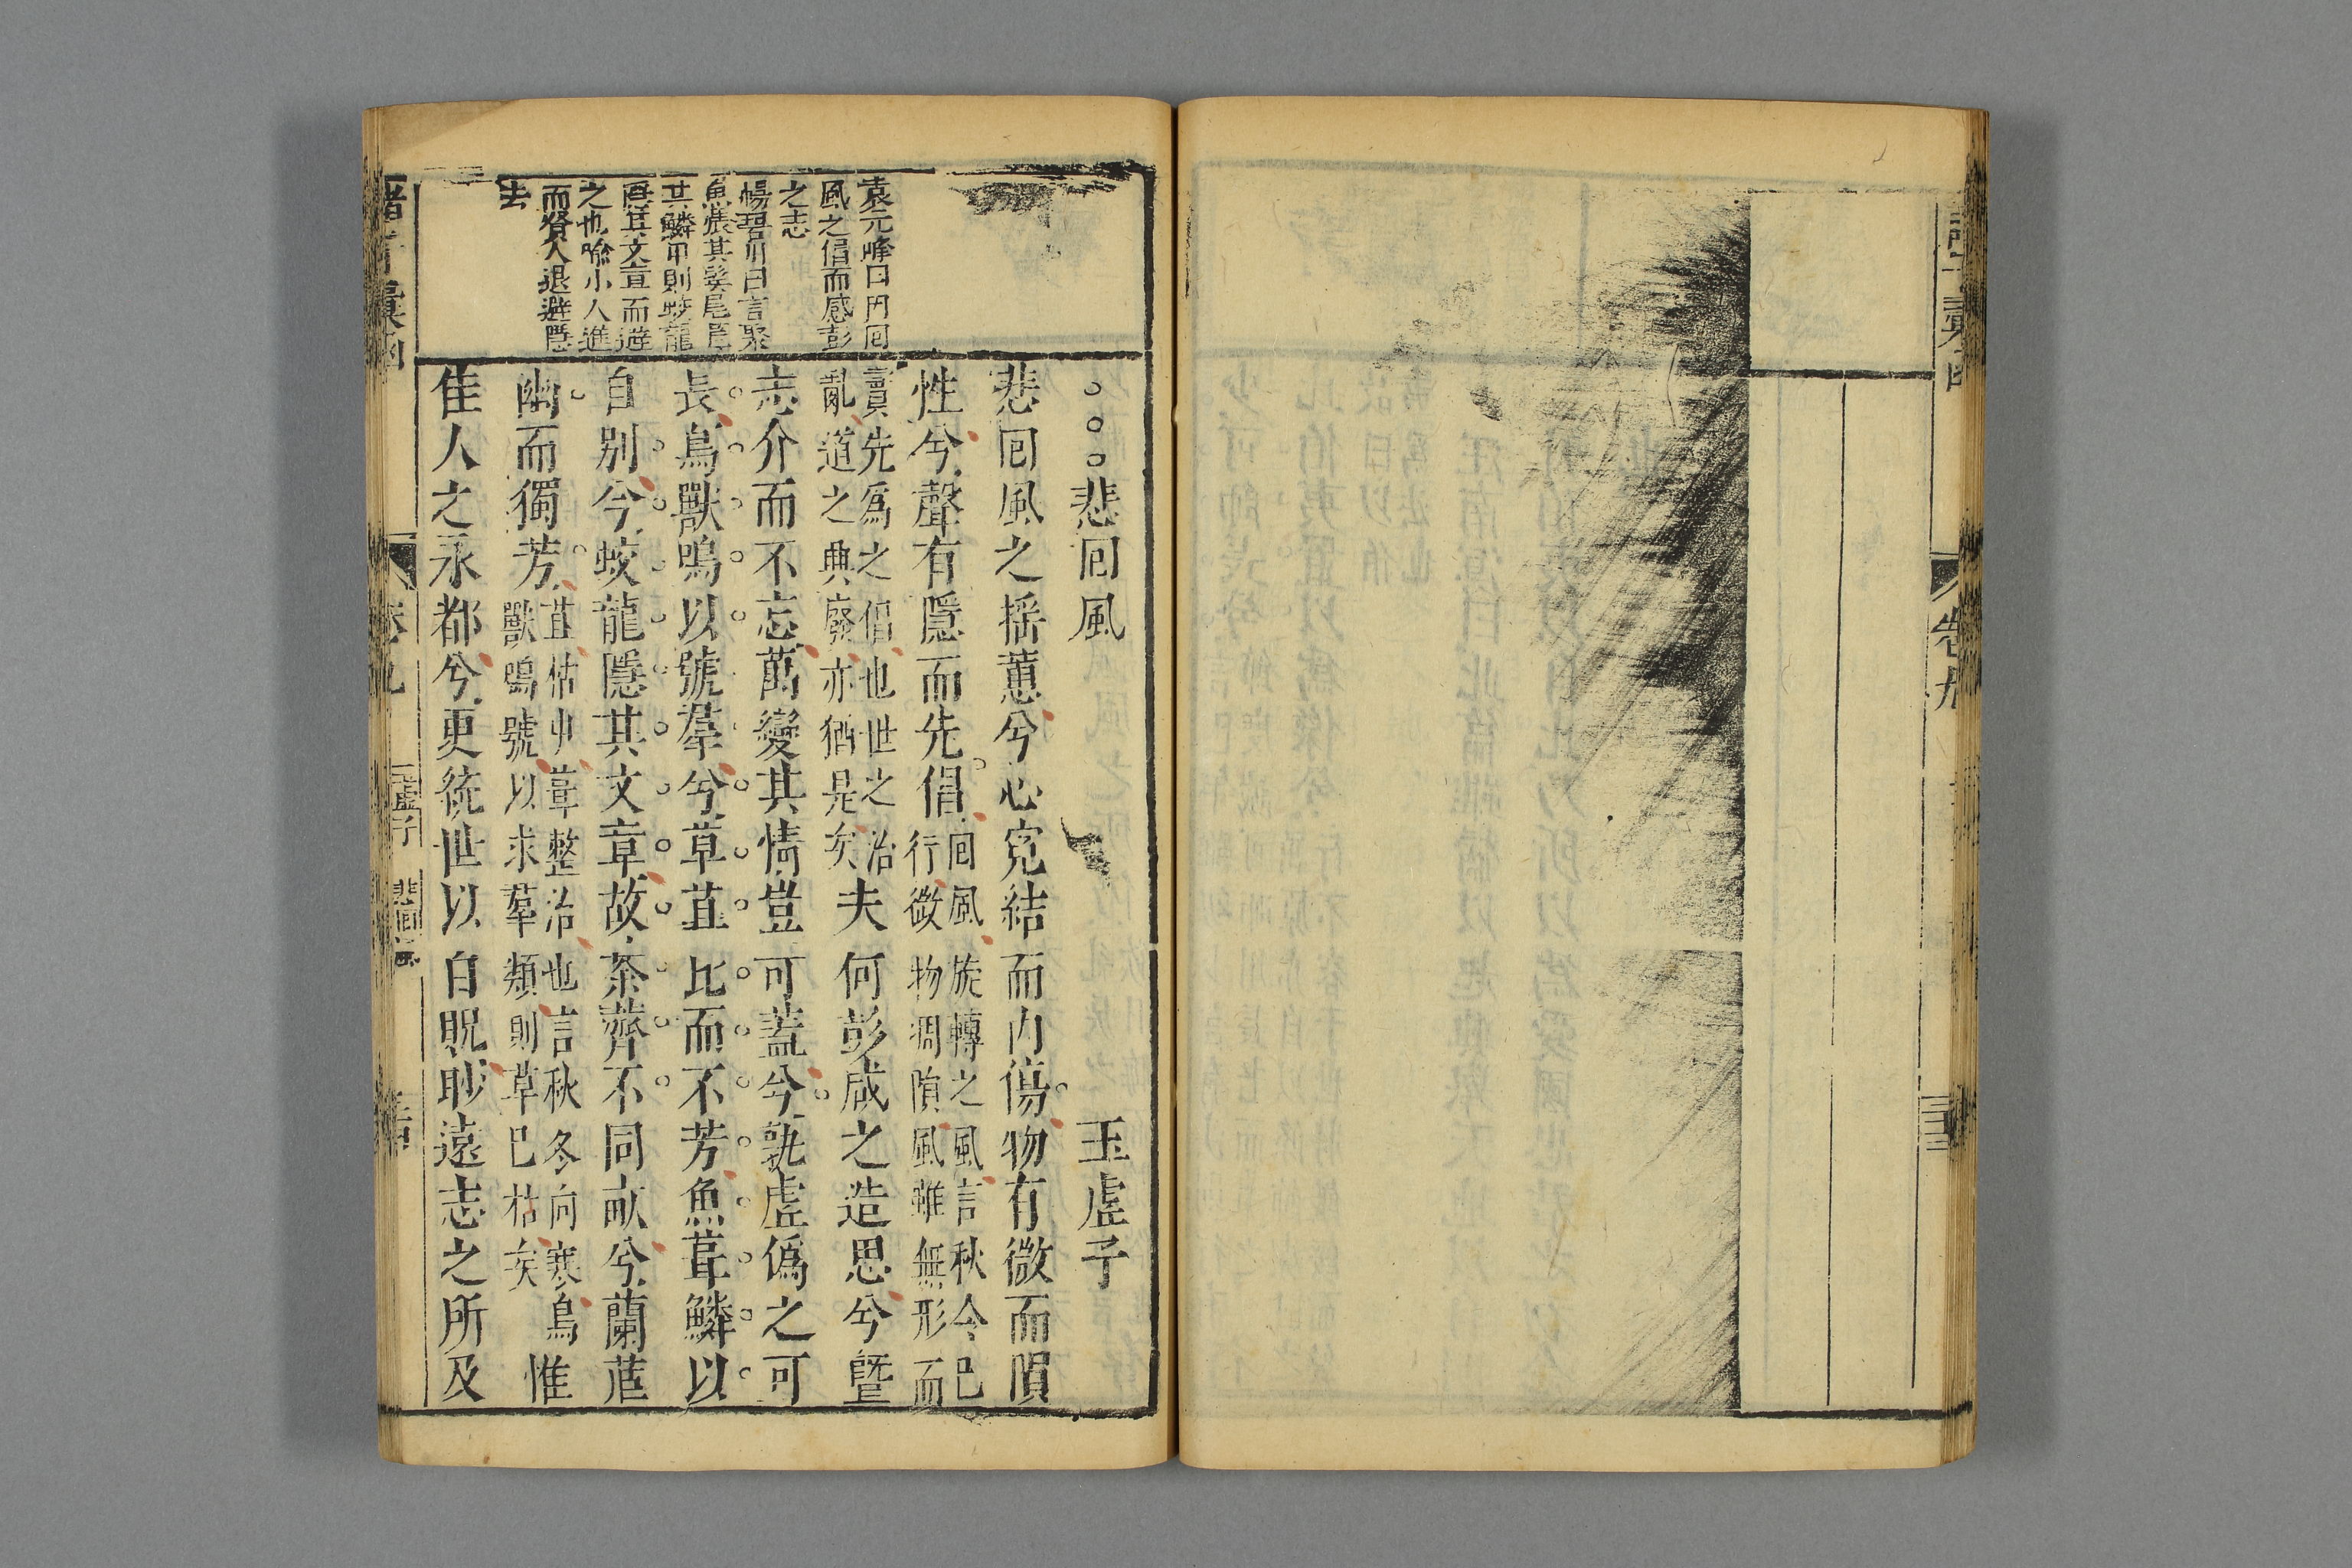 悲囘風　玉虛子
悲囘風之揺蕙兮心寃結而内傷物有微而隕
性兮聲有隱而先倡囘風旋轉之風言秋令巳
行微物凋隕風雖無形而
實先爲之倡也世之治
亂道之興廢亦猶是矣夫何彭咸之造思兮暨
志介而不忘萬變其情豈可蓋兮孰虛僞之可
長鳥獸鳴以號羣兮草苴比而不芳魚葺鱗以
自别兮蛟龍隱其文章故荼薺不同畝兮蘭茝
幽而獨芳苴枯屮葺整治也言秋冬向寒鳥
獸鳴號以求羣類則草巳枯矣惟
佳人之永都兮更統世以自貺眇遠志之所及
袁元峰曰因囘
風之倡而感彭
之志
楊碧川曰言聚
魚張其髮尾
其鱗甲則蛟龍
隱其文章而避
之也喻小人進
而賢人退避隱
去
諸子彚函
卷九
玉虛子
悲囘風
彚函
卷九